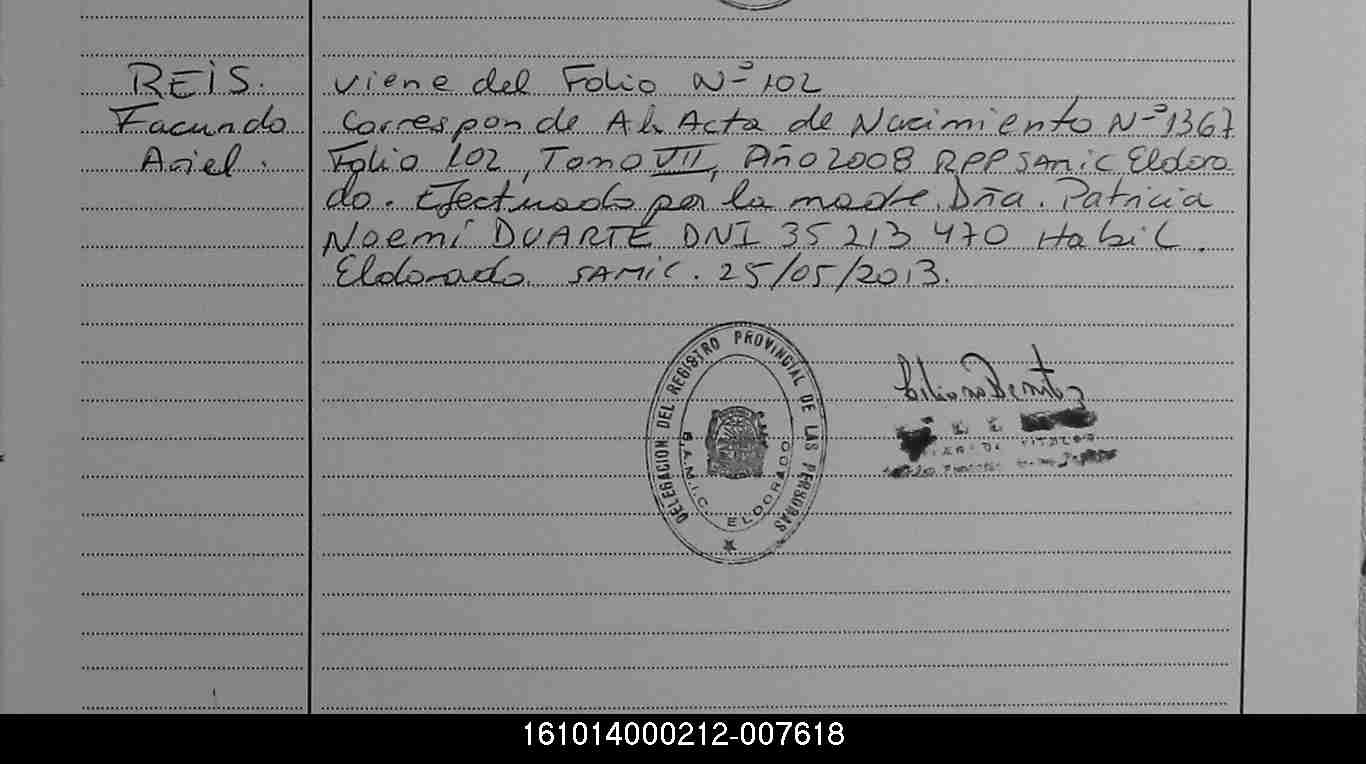 REIS.
Facundo
Ariel.
Viene del Folio Nº 102
Corresponde Al Acta de Nacimiento Nº 1367
Folio 102, Tomo VII, Año 2008 RPP SAMIC Eldora
do. Efectuado por la madre. Dña. Patricia
Noemí DUARTE DNI 35 213 470 Habil.
Eldorado. SAMIC. 25/05/2013.
DELEGACION DEL REGISTRO PROVINCIAL DE LAS PERSONAS
S.A.M.I.C. ELDORADO
161014000212-007618